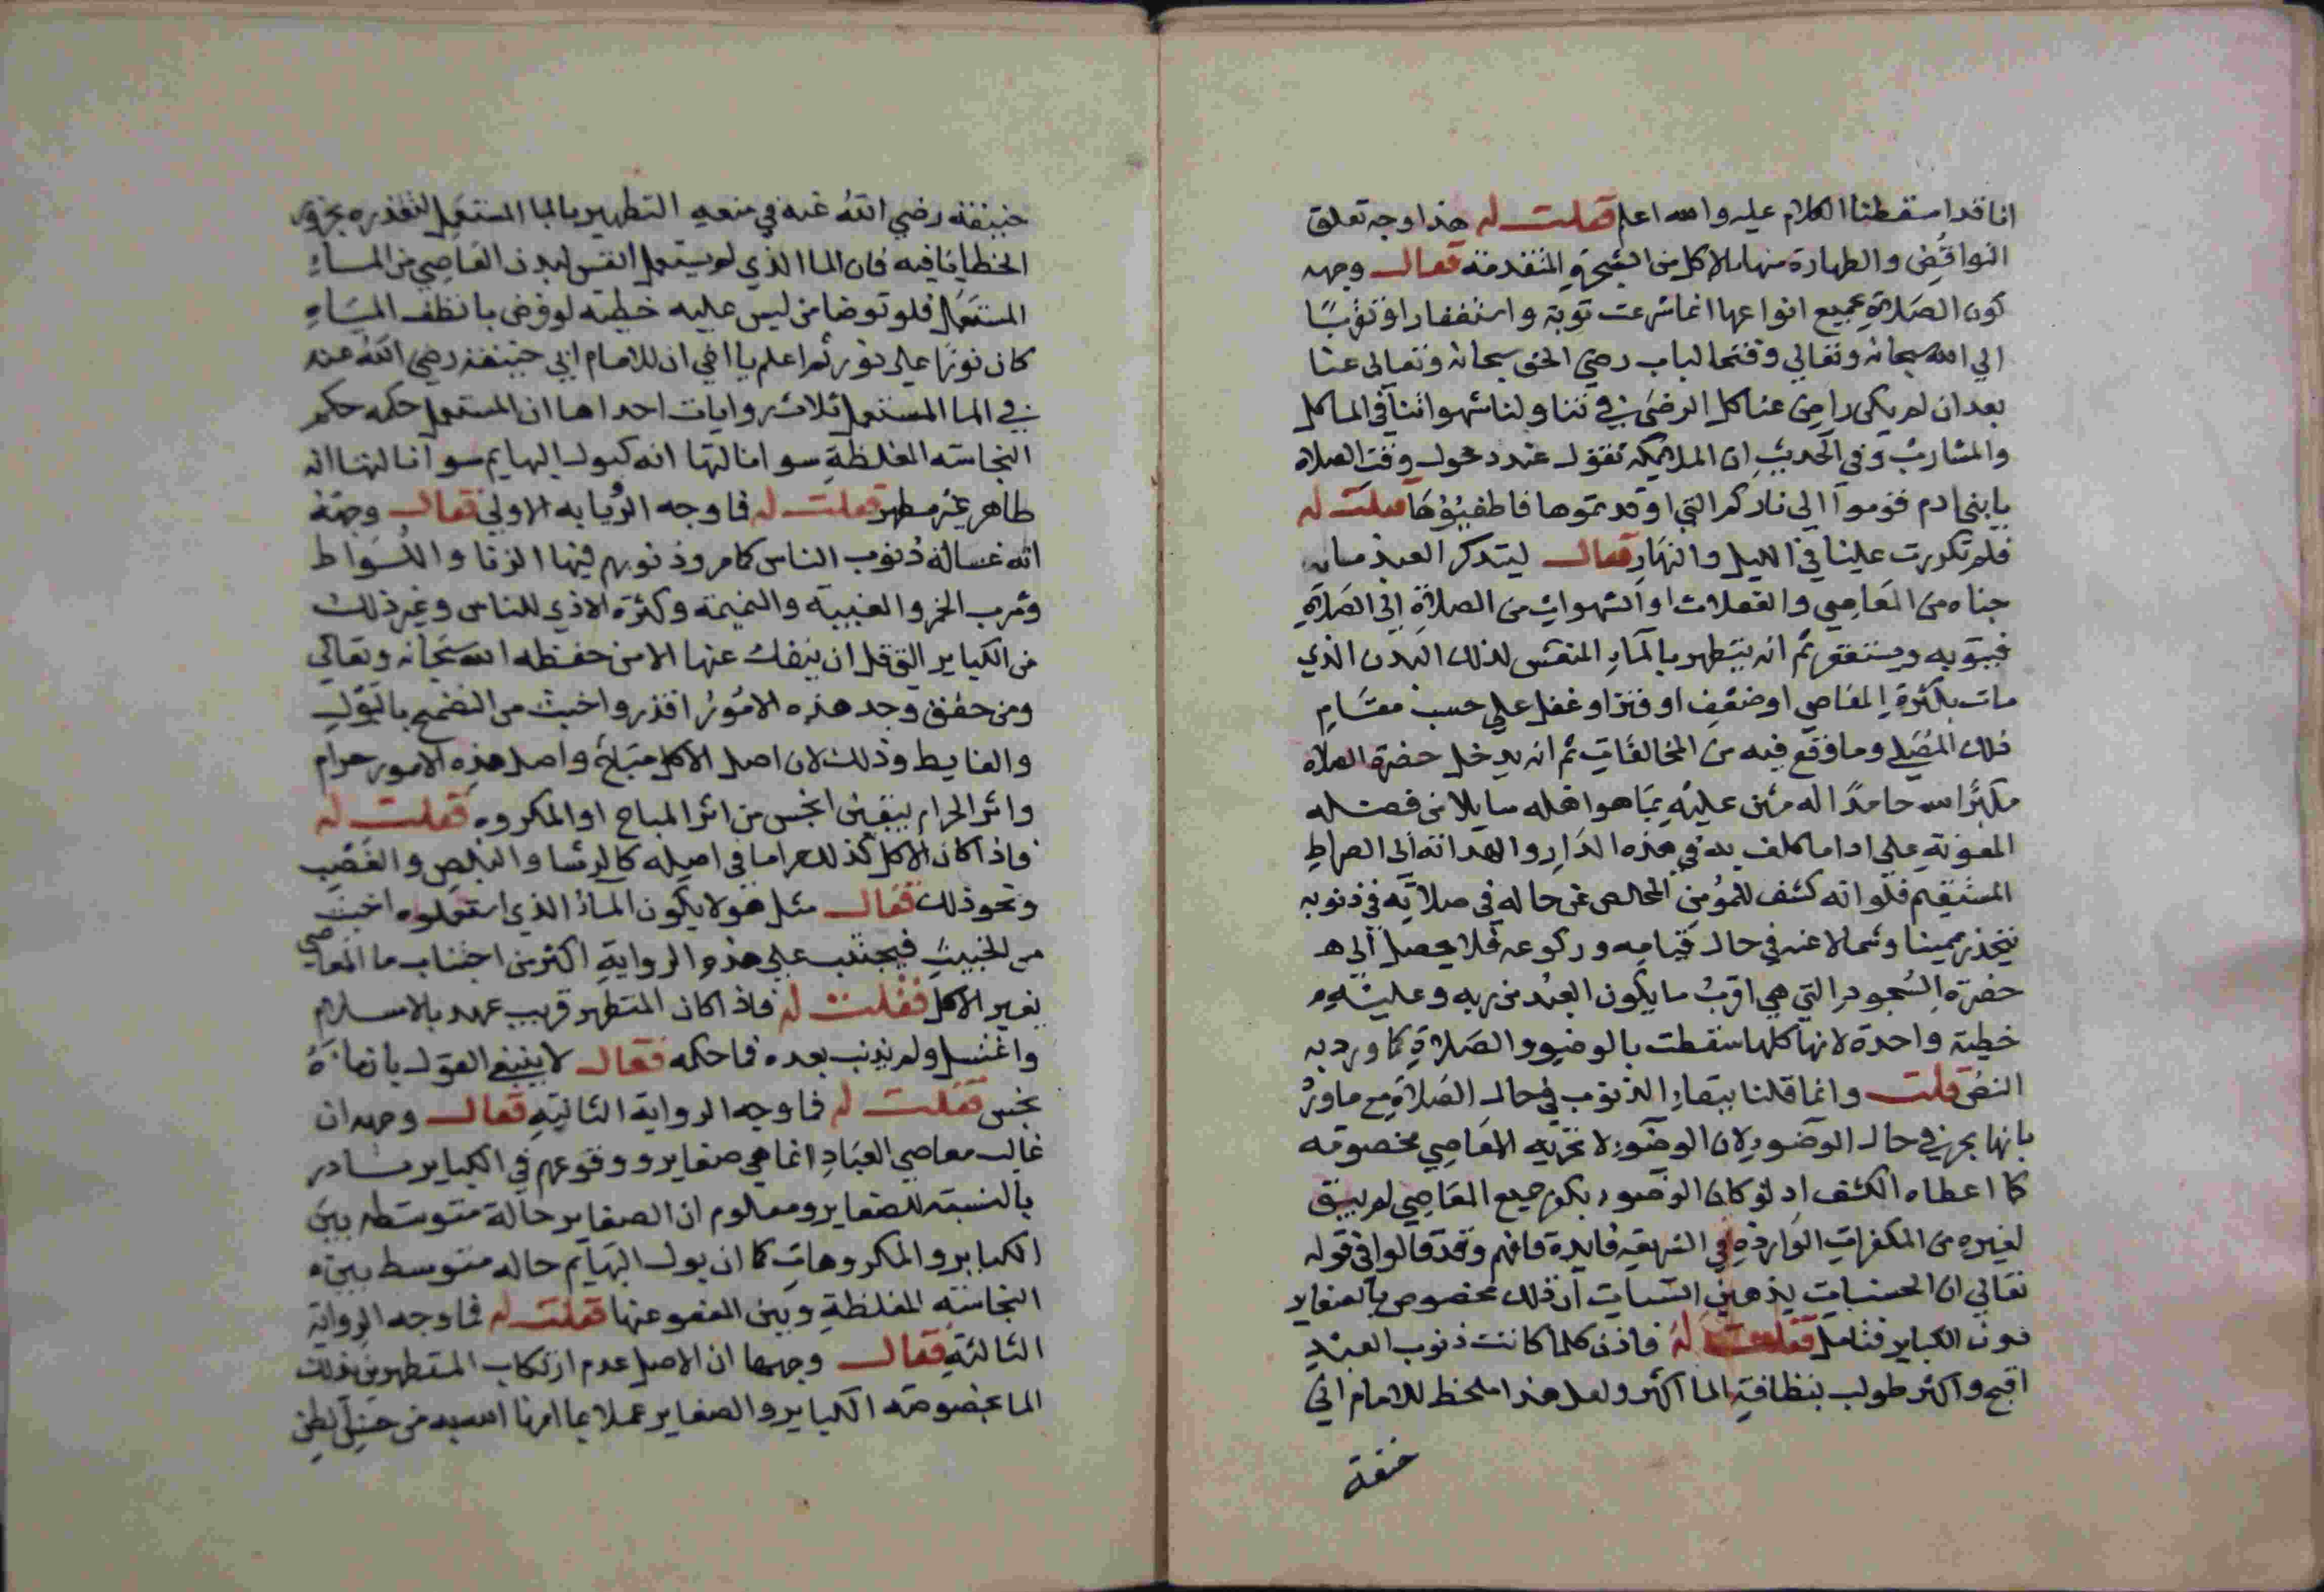 انا قد اسقطنا الكلام عليه والله اعلم فقلت له هذا وجه تعلق
النواقض والطهارة منها بالاكل من الشجرة المتقدمة فقال وجهه
كون الصلاة بجميع انواعها انما شرعت توبة واستغفارا وتقربًا
الي الله سبحانه وتعالي وفتحا لباب رضي الحق سبحانه وتعالى عنا
بعد ان لم يكن راضٍ عنا كل الرضى في تناولنا شهواتنا في الماكل
والمشارب وفي الحديث ان الملايكة تقول عند دخول وقت الصلاة
يا بني ادم قوموا الى ناركم التي اوقدتموها فاطفيؤها فقلت له
فلم تكررت علينا في الليل والنهار فقال ليتذكر العبد ما
جناه من المعاصي والغفلات او الشهوات من الصلاة الي الصلاة
فيتوبه ويستغفر ثم انه يتطهر بالماء المنعش لذلك البدن الذي
مات بكثرة المعاصي او ضعف او فتر او غفل علي حسب مقام
ذلك المصلي وما وقع فيه من المخالفات ثم انه يدخل حضرة الصلاة
مكبرًا لله حامدًا له مثن عليه بما هو اهله سايلا من فضله
المعونة علي اداء ما كلف به في هذه الدار والهداية الى الصراط
المستقيم فلو انه كشف للمؤمن الخالص عن حاله في صلاته في ذنوبه
تتحدر يمينا وشمالا عنه في حال قيامه وركوعه فلا يصل الى
حضرة السجود التي هي اقرب ما يكون العبد من ربه وعليه
خطية واحدة لانها كلها سقطت بالوضوء والصلاة كما ورد به
النص قلت وانما قلنا ببقاء الذنوب في حال الصلاة مع ما ورد
بانها تخر في حال الوضوء لان الوضوء لا تخر به الا معاصي مخصوصة
كما اعطاه الكشف اذ لو كان الوضوء يكفر جميع المعاصي لم يبق
لغيره من المكفرات الواردة في الشريعة فايدة فافهم وقد قالوا في قوله
تعالي ان الحسنات يذهبن السيات ان ذلك مخصوص بالصغاير
دون الكباير فتامل فقلت له فاذن كلما كانت ذنوب العبد
اقبح واكثر طولب بنظافة الما اكثر ولعل هذا ملحظ للامام ابي
حنيفة
حنيفة رضي الله عنه في منعه التطهير بالما المستعمل لتقذره بخرور
الخطايا فيه فان الما الذي لم يستعمل انعش لبدن العاصي من الماء
المستعمل فلو توضا من ليس عليه خطية لو فرض بانظف المياه
كان نورًا علي نور ثم اعلم يا اخي ان للامام ابي حنيفة رضي الله عنه
في الما المستعمل ثلاث روايات احداها ان المستعمل حكمه حكم
النجاسة المغلظة سوا ثانيتها انه كبول البهايم سوا ثالثها انه
طاهر غير مطهر فقلت له فما وجه الرواية الاولي فقال وجهه
انه غسالة ذنوب الناس كما مر وذنوبهم فيها الزنا واللواط
وشرب الخمر والغيبة والنميمة وكثرة الاذي للناس وغير ذلك
من الكباير التي قل ان ينفك عنها الا من حفظه الله سبحانه وتعالي
ومن حقق وجد هذه الامور اقذر واخبث من التضمخ بالبول
والغايط وذلك لان اصل الاكل مباح واصل هذه الامور حرام
واثر الحرام بيقين انجس من اثر المباح او المكروه فقلت له
فاذا كان الاكل كذلك حراما في اصله كالرشا والبلص والغصب
ونحو ذلك فقال مثل هولا يكون الماء الذي استعملوه اخبث
من الخبيث فيجتنب علي هذه الرواية اكثر من اجتناب ما المعاصي
بغير الاكل فقلت له فاذا كان المتطهر قريب عهد بالاسلام
واغتسل ولم يذنب بعده فما حكمه فقال لا ينبغي القول بان ماءه
نجس فقلت له فما وجه الرواية الثانية فقال وجهه ان
غالب معاصي العباد انما هي صغاير ووقوعهم في الكباير نادر
بالنسبة للصغاير ومعلوم ان الصغاير حالة متوسطة بين
الكباير والمكروهات كما ان بول البهايم حاله متوسط بين
النجاسة المغلظة وبين المعفو عنها فقلت له فما وجه الرواية
الثالثة فقال وجهها ان الاصل عدم ارتكاب المتطهرين بذلك
الما بخصوصه الكباير والصغاير عملا بما امرنا الله به من حسن الظن